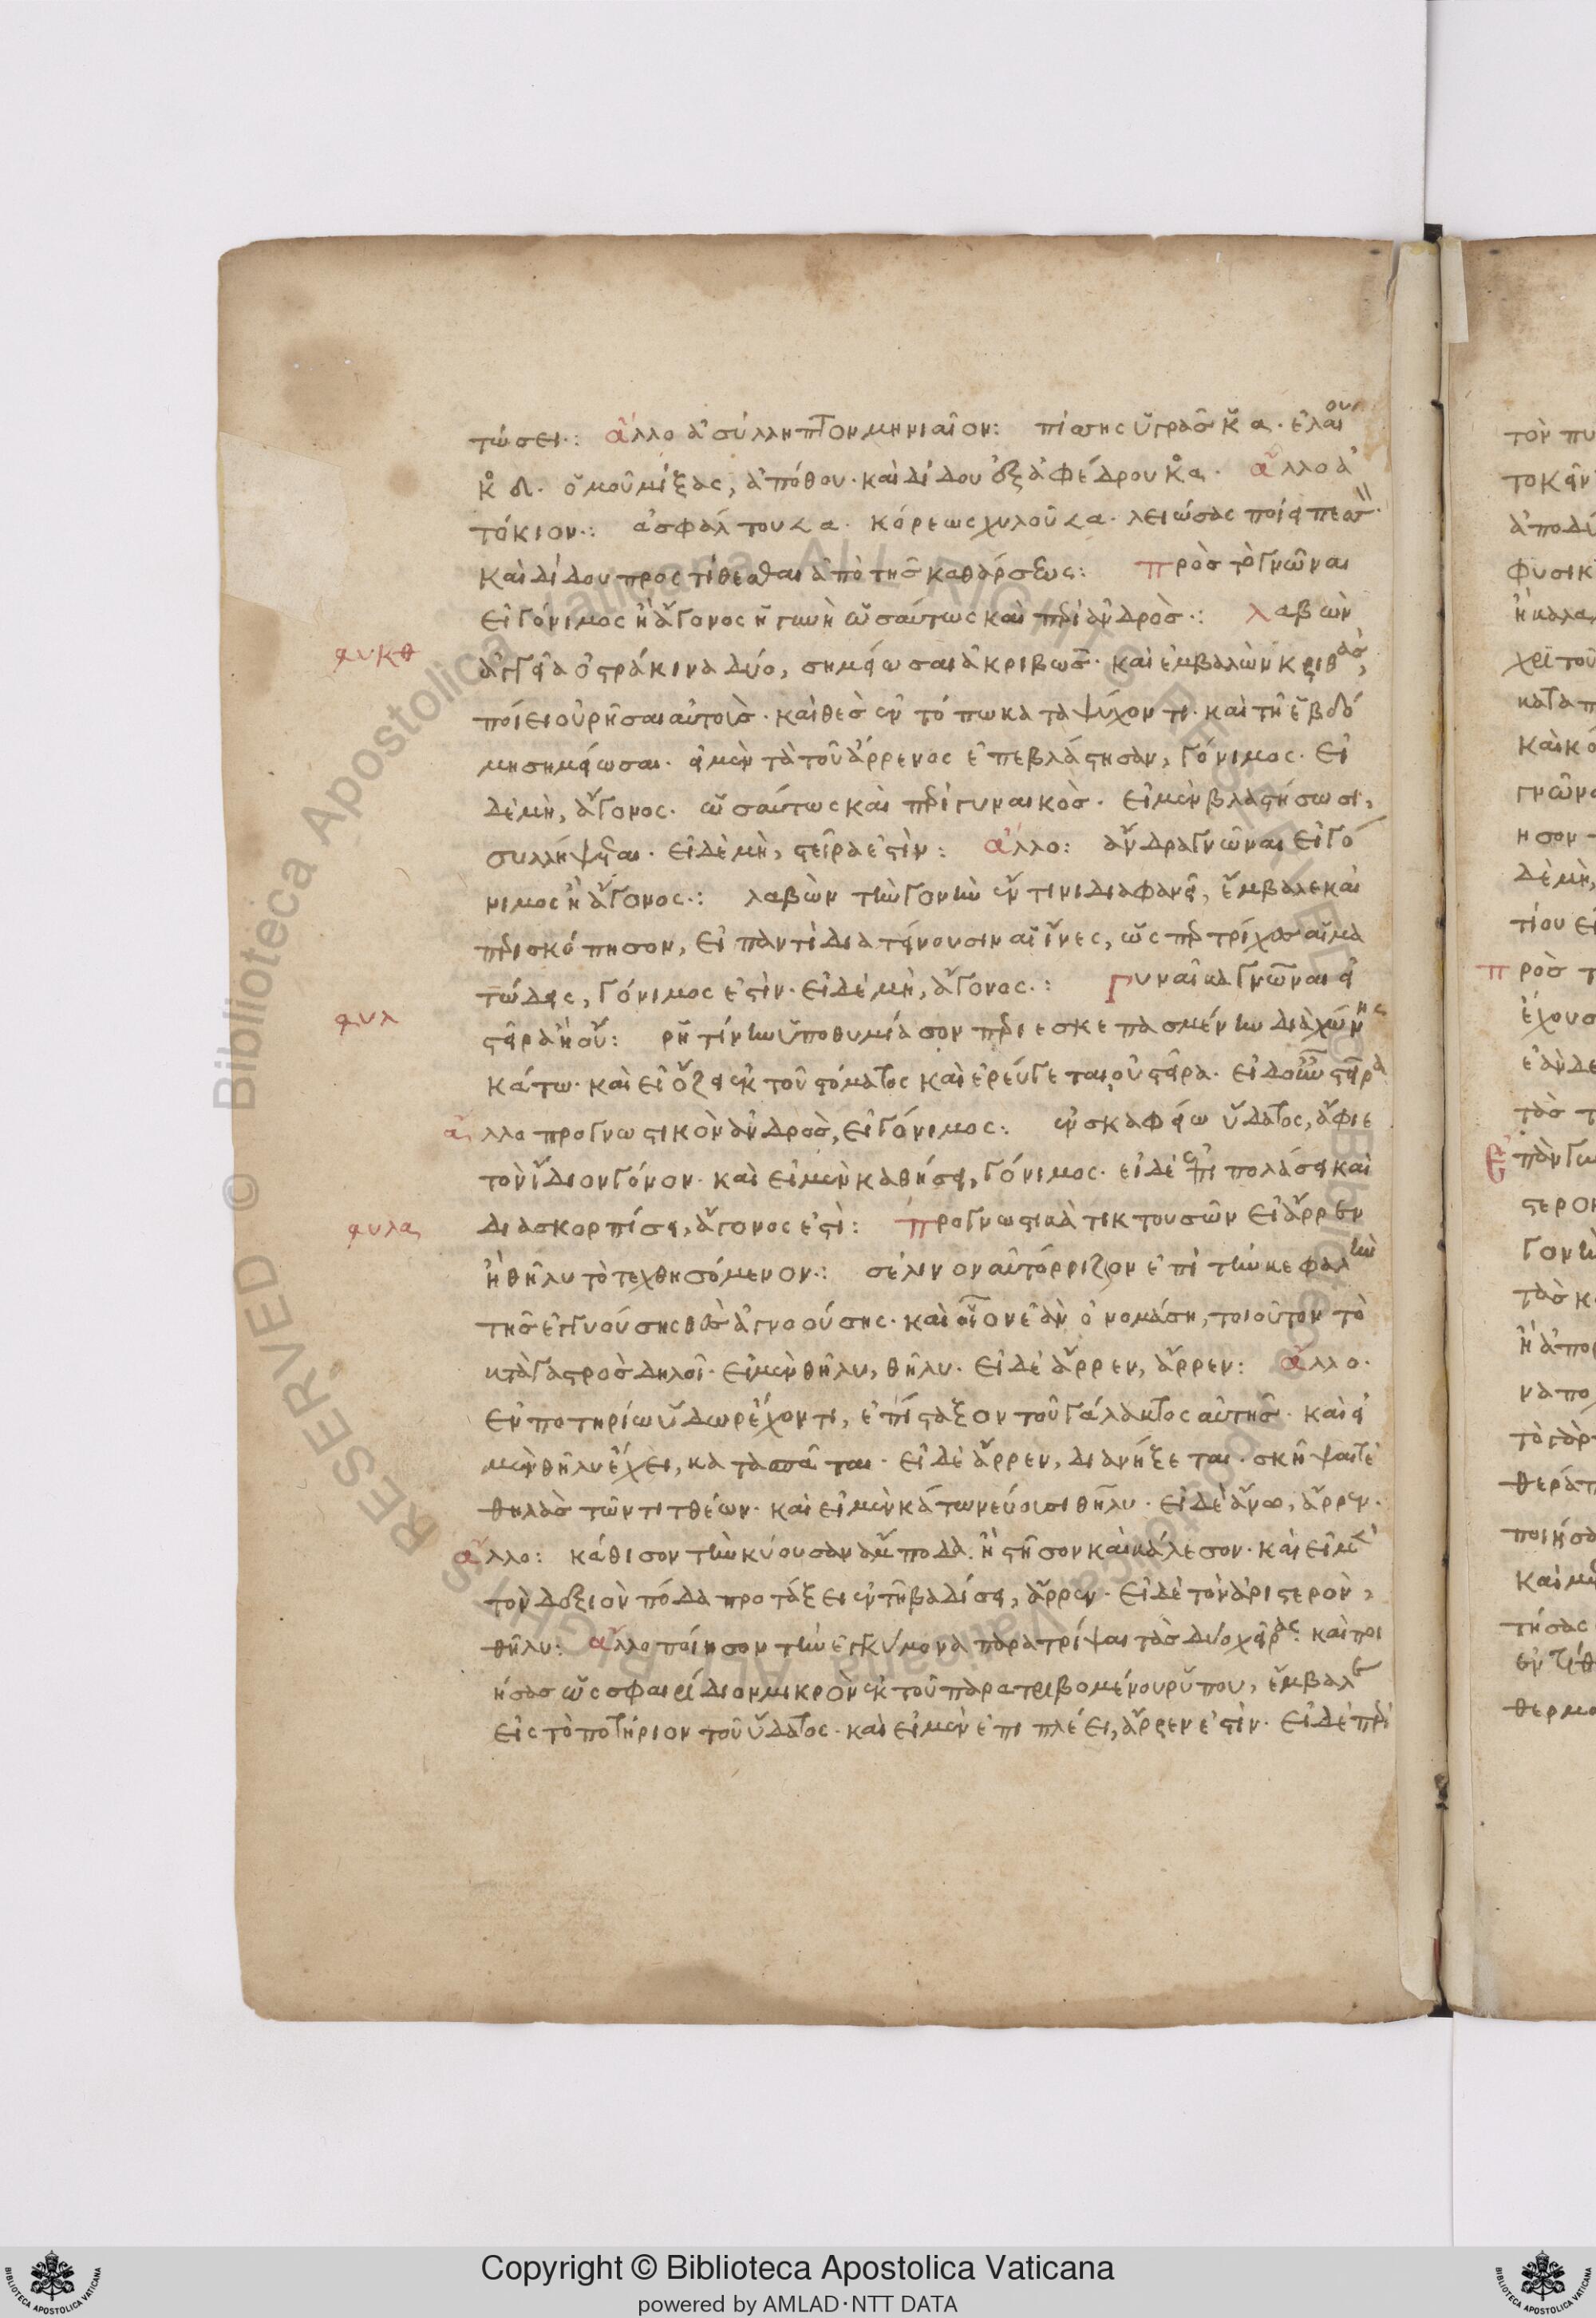 τώσει·: ἄλλο ἀσύλληπτον μηνιαῖον: πίσσης ὑγρᾶς κ̆ α· ἐλαίου
κ̆ δ. ὁμοῦ μίξας, ἀπόθου· καὶ δίδου ἐξ ἀφέδρου κ̆ α· ἄλλο ἀ
τόκιον·: ἀσφάλτου < α· κόρεως χυλοῦ < α· λειώσας ποίει πεσσ·
καὶ δίδου προστίθεσθαι ἀπὸ τῆς καθάρσεως: πρὸς τὸ γνῶναι
εἰ γόνιμος ἢ ἄγονος ἡ γυνὴ ὡσαύτως καὶ περὶ ἀνδρὸς·: λαβὼν
φυκθ
ἀγγεῖα ὀστράκινα δύο, σημείωσαι ἀκριβῶς· καὶ ἐμβαλὼν κριθὰς,
ποίει οὐρῆσαι αὐτοῖς· καὶ θὲς ἐν τόπω καταψύχοντι· καὶ τῆ ἑβδό
μη σημείωσαι· εἰ μὲν τὰ τοῦ ἄρρενος ἐπεβλάστησαν, γόνιμος· εἰ
δὲ μὴ, ἄγονος· ὡσαύτως καὶ περὶ γυναικὸς· εἰ μὲν βλαστήσωσι,
συλλήψεται· εἰ δὲ μὴ, στεῖρα ἐστὶν: ἄλλο: ἄνδρα γνῶναι εἰ γό
νιμος ἢ ἄγονος·: λαβὼν τὴν γονὴν ἔν τινι διαφανεῖ, ἔμβαλε καὶ
περισκόπησον, εἰ παντὶ διατείνουσιν αἱ ἶνες, ὥσπερ τρίχες αἱμα
τώδεις, γόνιμος ἐστὶν· εἰ δὲ μὴ, ἄγονος·: γυναῖκα γνῶναι εἰ
φυλ
στεῖρα ἢ οὔ: ῥητίνην ὑποθυμίασον περιεσκεπασμένην διὰ χώνης
κάτω· καὶ εἰ ὄζει ἐκ τοῦ στόματος καὶ ἐρεύγεται, οὐ στεῖρα· εἰ δ οὖν στεῖρα
ἄλλο προγνωστικὸν ἀνδρὸς, εἰ γόνιμος: ἐν σκαφείω ὕδατος, ἄφιε
τὸν ἴδιον γόνον· καὶ εἰ μὲν καθήσει, γόνιμος· εἰ δὲ ἐπιπολάσει καὶ
φυλα
διασκορπίσει, ἄγονος ἐστὶ: προγνωστικὰ τικτουσῶν εἰ ἄρρεν
ἢ θῆλυ τὸ τεχθησόμενον·: σέλινον αὐτόρριζον ἐπὶ τὴν κεφαλὴν
τῆς ἐγγυούσης θὲς ἀγνοούσης· καὶ οἷον ἐὰν ὀνομάση, τοιοῦτον τὸ
κατὰ γαστρὸς δηλοῖ· εἰ μὲν θῆλυ, θῆλυ· εἰ δὲ ἄρρεν, ἄρρεν: ἄλλο·
ἐν ποτηρίω ὕδωρ ἔχοντι, ἐπίσταξον τοῦ γάλακτος αὐτῆς· καὶ εἰ
μὲν θῆλυ ἔχει, κατασπᾶται· εἰ δὲ ἄρρεν, διανήξεται· σκῆψαι τὲ
θηλὰς τῶν τιτθέων· καὶ εἰ μὲν κάτω νεύοισι θῆλυ· εἰ δὲ ἄνω, ἄρρεν·
ἄλλο: κάθισον τὴν κύουσαν ἅμποδα. ἢ στῆσον καὶ κάλεσον· καὶ εἰ μὲν
τὸν δεξιὸν πόδα προτάξει ἐν τῆ βαδίσει, ἄρρεν· εἰ δὲ τὸν ἀριστερὸν,
θῆλυ: ἄλλο ποίησον τὴν ἐγκύμονα παρατρίψαι τὰς δύο χεῖρας· καὶ ποι
ήσας ὡς σφαιρίδιον μικρὸν ἐκ τοῦ παρατριβομένου ῥύπου, ἔμβαλε
εἰς τὸ ποτήριον τοῦ ὕδατος· καὶ εἰ μὲν ἐπιπλέει, ἄρρεν ἐστὶν· εἰ δὲ περὶ
Copyright © Biblioteca Apostolica Vaticana
powered by AMLAD·NTT DATA